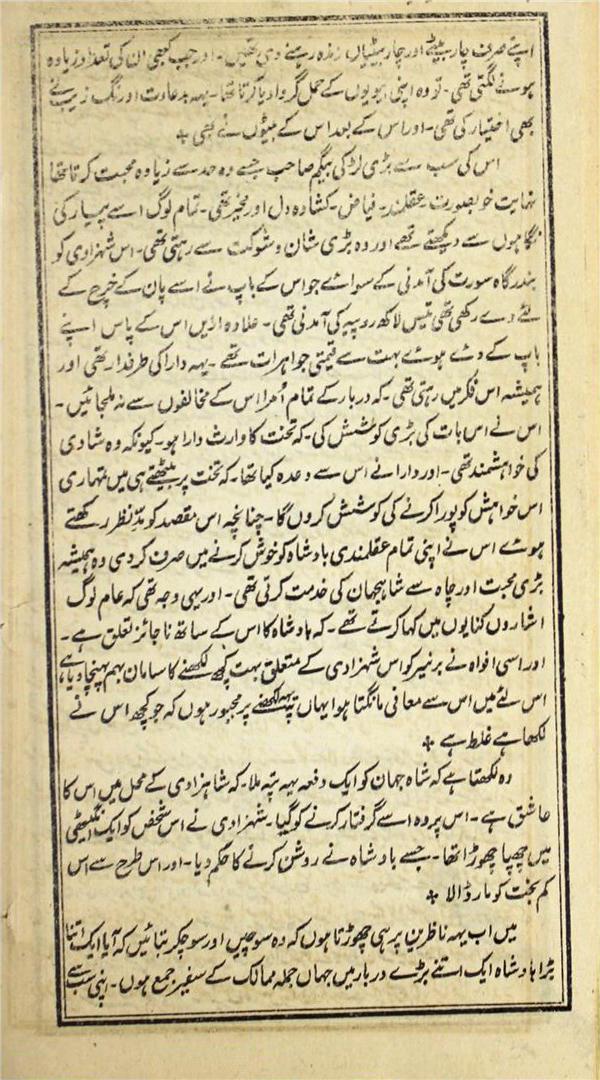 اپنے صرف چار بیٹے اور چار بیٹیاں زندہ رہنے دی تھیں۔ اور جب کبھی ان کی تعداد زیادہ
ہونے لگتی تھی۔ تو وہ اپنی بیویوں کے حمل گروا دیا کرتا تھا۔ یہہ بد عادت اورنگ زیب نے
بھی اختیار کی تھی۔ اور اس کے بعد اس کے بیٹوں نے بھی ÷
اس کی سب سے بڑی لڑکی بیگم صاحب جسے وہ حد سے زیادہ محبت کرتا تھا
نہایت خوبصورت عقلمند۔ فیاض۔ کشادہ دل اور مخیر تھی۔ تمام لوگ اسے پیار کی
نگاہوں سے دیکھتے تھے اور وہ بڑی شان و شوکت سے رہتی تھی۔ اس شہزادی کو
بندرگاہ سورت کی آمدنی کے سوائے جو اس کے باپ نے اسے پان کے خرچ کے
لئے دے رکھی تھی تیس لاکھ روپیہ کی آمدنی تھی۔ علاوہ ازیں اس کے پاس اپنے
باپ کے دئے ہوئے بہت سے قیمتی جواہرات تھے۔ یہہ دارا کی طرفدار تھی اور
ہمیشہ اس فکر میں رہتی تھی۔ کہ دربار کے تمام اُمرا اس کے مخالفوں سے نہ ملجائیں۔
اس نے اس بات کی بڑی کوشش کی۔ کہ تخت کا وارث دارا ہو۔ کیونکہ وہ شادی
کی خواہشمند تھی۔ اور دارا نے اس سے وعدہ کیا تھا۔ کہ تخت پر بیٹھتے ہی میں تمہاری
اس خواہش کو پورا کرنے کی کوشش کروں گا۔ چنانچہ اس مقصد کو مدِّ نظر رکھتے
ہوئے اس نے اپنی تمام عقلمندی بادشاہ کو خوش کرنے میں صرف کر دی وہ ہمیشہ
بڑی محبت اور چاہ سے شاہجہان کی خدمت کرتی تھی۔ اور یہی وجہ تھی کہ عام لوگ
اشاروں کنایوں میں کہا کرتے تھے۔ کہ بادشاہ کا اس کے ساتھ ناجائز تعلق ہے۔
اور اسی افواہ نے برنیر کو اس شہزادی کے متعلق بہت کچھ لکھنے کا سامان بہم پہنچا دیا ہے
اس لئے میں اس سے معافی مانگتا ہوا یہاں یہہ لکھنے پر مجبور ہوں کہ جو کچھ اس نے
لکھا ہے غلط ہے ÷
وہ لکھتا ہے کہ شاہ جہان کو ایک دفعہ یہہ پتہ ملا۔ کہ شاہزادی کے محل میں اس کا
عاشق ہے۔ اس پر وہ اسے گرفتار کرنے کو گیا۔ شہزادی نے اس شخص کو ایک انگیٹھی
میں چھپا چھوڑا تھا۔ جسے بادشاہ نے روشن کرنے کا حکم دیا۔ اور اس طرح سے اس
کم بخت کو مار ڈالا ÷
میں اب یہہ ناظرین پر ہی چھوڑتا ہوں کہ وہ سوچیں اور سوچکر بتائیں کہ آیا ایک اتنا
بڑا بادشاہ ایک اتنے بڑے دربار میں جہاں جملہ ممالک کے سفیر جمع ہوں۔ اپنی سب سے